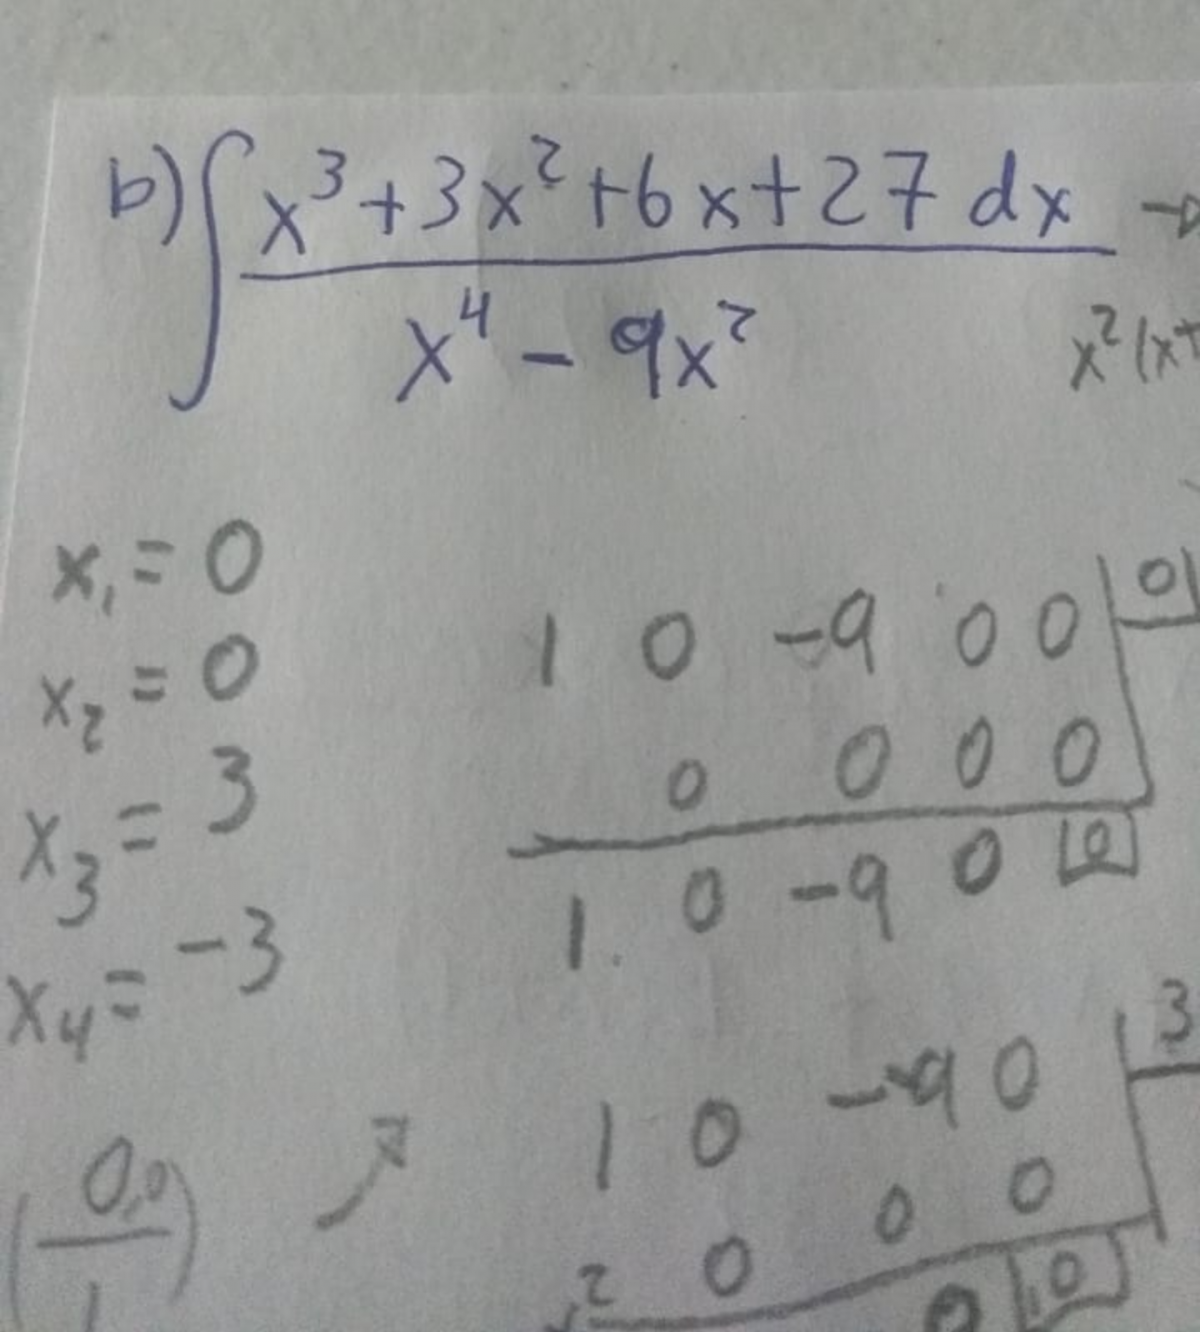 b) ∫ x³ + 3x² + 6x + 27 dx →
x⁴ - 9x²
x²(x+
x₁ = 0
x₂ = 0
x₃ = 3
x₄ = -3
1 0 -9 0 0 | 0
0 0 0 0
1 0 -9 0 0
1 0 -9 0 | 3
0 0 0
0 0
(0,0
1)